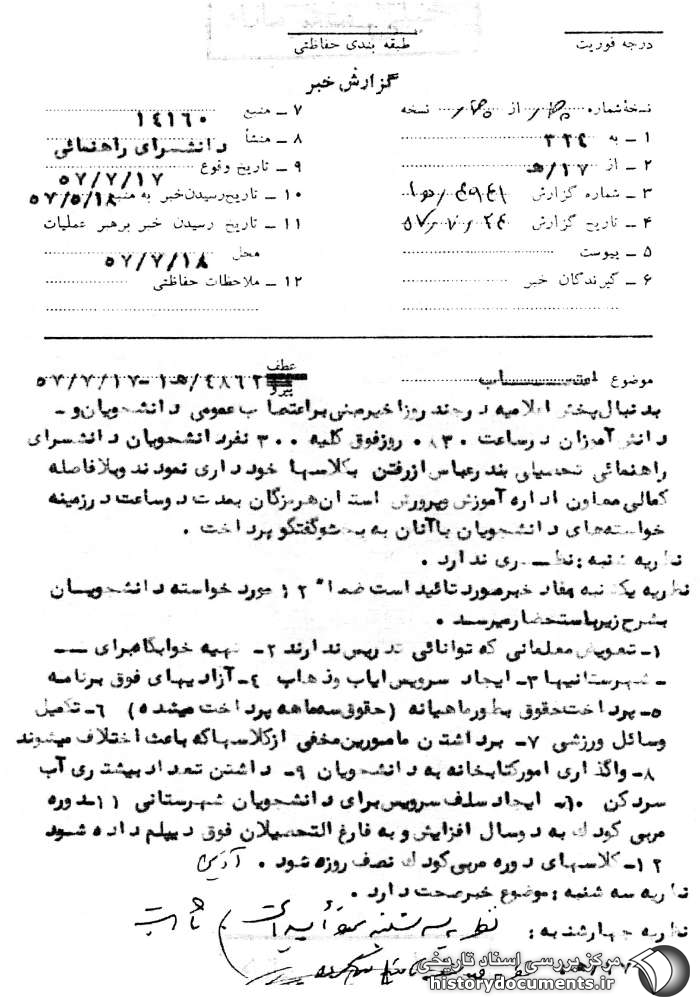 درجه فوریت
طبقه بندی حفاظتی
گزارش خبر
نسخهٔ شماره از نسخه
۱ ــ به ۳۳٤
۲ ــ از ۱۷/ﻫ
۳ ــ شماره گزارش
٤ ــ تاریخ گزارش
۵ ــ پیوست
۶ ــ گیرندگان خبر
۷ ــ منبع ۱٤۱٦۰
۸ ــ منشأ دانشسرای راهنمائی
۹ ــ تاریخ وقوع ۵۷/۷/۱۷
۱۰ ــ تاریخ رسیدن خبر به منبع ۵۷/۵/۱۸
۱۱ ــ تاریخ رسیدن خبر برهبر عملیات
محل ۵۷/۷/۱۸
۱۲ ــ ملاحظات حفاظتی
موضوع اعتصاب
عطف
پیرو ٤۸٦۲/ﻫ۱ــ۵۷/۷/۱۷
بدنبال پخش اعلامیه در چند روز اخیر مبنی بر اعتصاب عمومی دانشجویان و ــ
دانش آموزان در ساعت ۰۸۳۰ روز فوق کلیه ۳۰۰ نفر دانشجویان دانشسرای
راهنمائی تحصیلی بندرعباس از رفتن بکلاسها خودداری نمودند و بلافاصله
کمالی معاون اداره آموزش وپرورش استان هرمزگان بمدت دوساعت درزمینه
خواسته‌های دانشجویان باآنان به بحث و گفتگو پرداخت .
نظریه شنبه : نظــری ندارد .
نظریه یکشنبه مفاد خبر مورد تائید است ضمنا" ۱۲ مورد خواسته دانشجویــان
بشرح زیر باستحضار میرسد .
۱ــ تعویض معلمانی که توانائی تدریس ندارند ۲ــ تهیه خوابگاه برای ــ
ــ شهرستانیها ۳ــ ایجاد سرویس ایاب وذهاب ٤ــ آزادیهای فوق برنامه
۵ــ پرداخت حقوق بطور ماهیانه (حقوق سه ماهه پرداخت میشده) ٦ــ تکمیل
وسائل ورزشی ۷ــ برداشتن مامورین مخفی از کلاسها که باعث اختلاف میشوند
۸ــ واگذاری امور کتابخانه به دانشجویان ۹ــ داشتن تعداد بیشتری آب
سرد کن ۱۰ــ ایجاد سلف سرویس برای دانشجویان شهرستانی ۱۱ــ دوره
مربی کودک به دوسال افزایش و به فارغ التحصیلان فوق دیپلم داده شــود
۱۲ــ کلاسهای دوره مربی کودک نصف روزه شود .
نظریه سه شنبه : موضوع خبر صحت دارد .
نظریه چهارشنبه : نظریه سه شنبه مورد تأیید است
مرکز بررسی اسناد تاریخی
historydocuments.ir